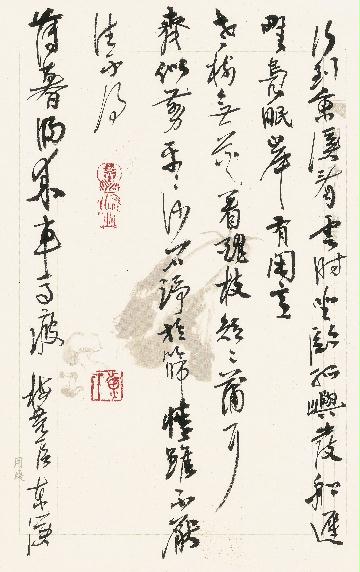 行到東溪看水时坐臨孤嶼發船遲
野鳧眠岸有閑意
老樹無花着醜枝短短蒲耳
齊似剪平平沙石淨於篩情雖不厭
住不得
薄暮歸來車馬疲 梅堯臣東溪